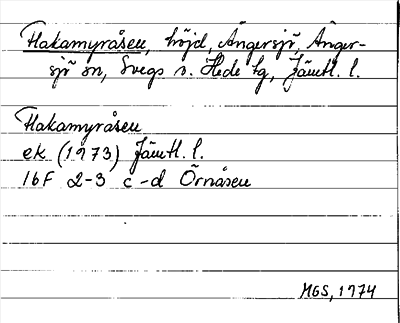 Flakamyråsen, höjd, Ängersjö, Änger-
sjö sn, Svegs o. Hede tg, Jämtl. l.
Flakamyråsen
ek (1973) Jämtl. l.
16F 2-3 c-d Örnåsen
MGS, 1974